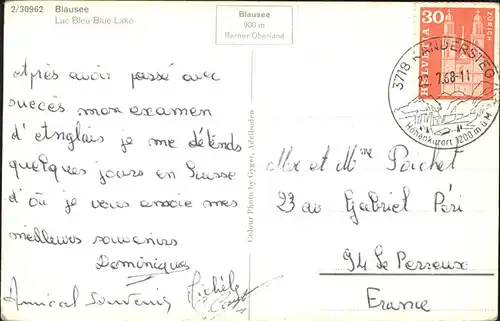 2/30962 Blausee
Lac Bleu-Blue Lake
Blausee
900 m
Berner Oberland
30
HELVETIA
ZÜRICH
3718 KANDERSTEG
7.68-11
Höhenkurort 1200 m ü M
Après avoir passé avec
succès mon examen
d'Anglais je me détends
quelques jours en Suisse
d'où je vous envoie mes
meilleurs souvenirs
Dominique
Amical Souvenir Michèle
Colour Photo by Gyger, Adelboden
Mr et Mme Porchet
23 av Gabriel Péri
94 Le Perreux
France